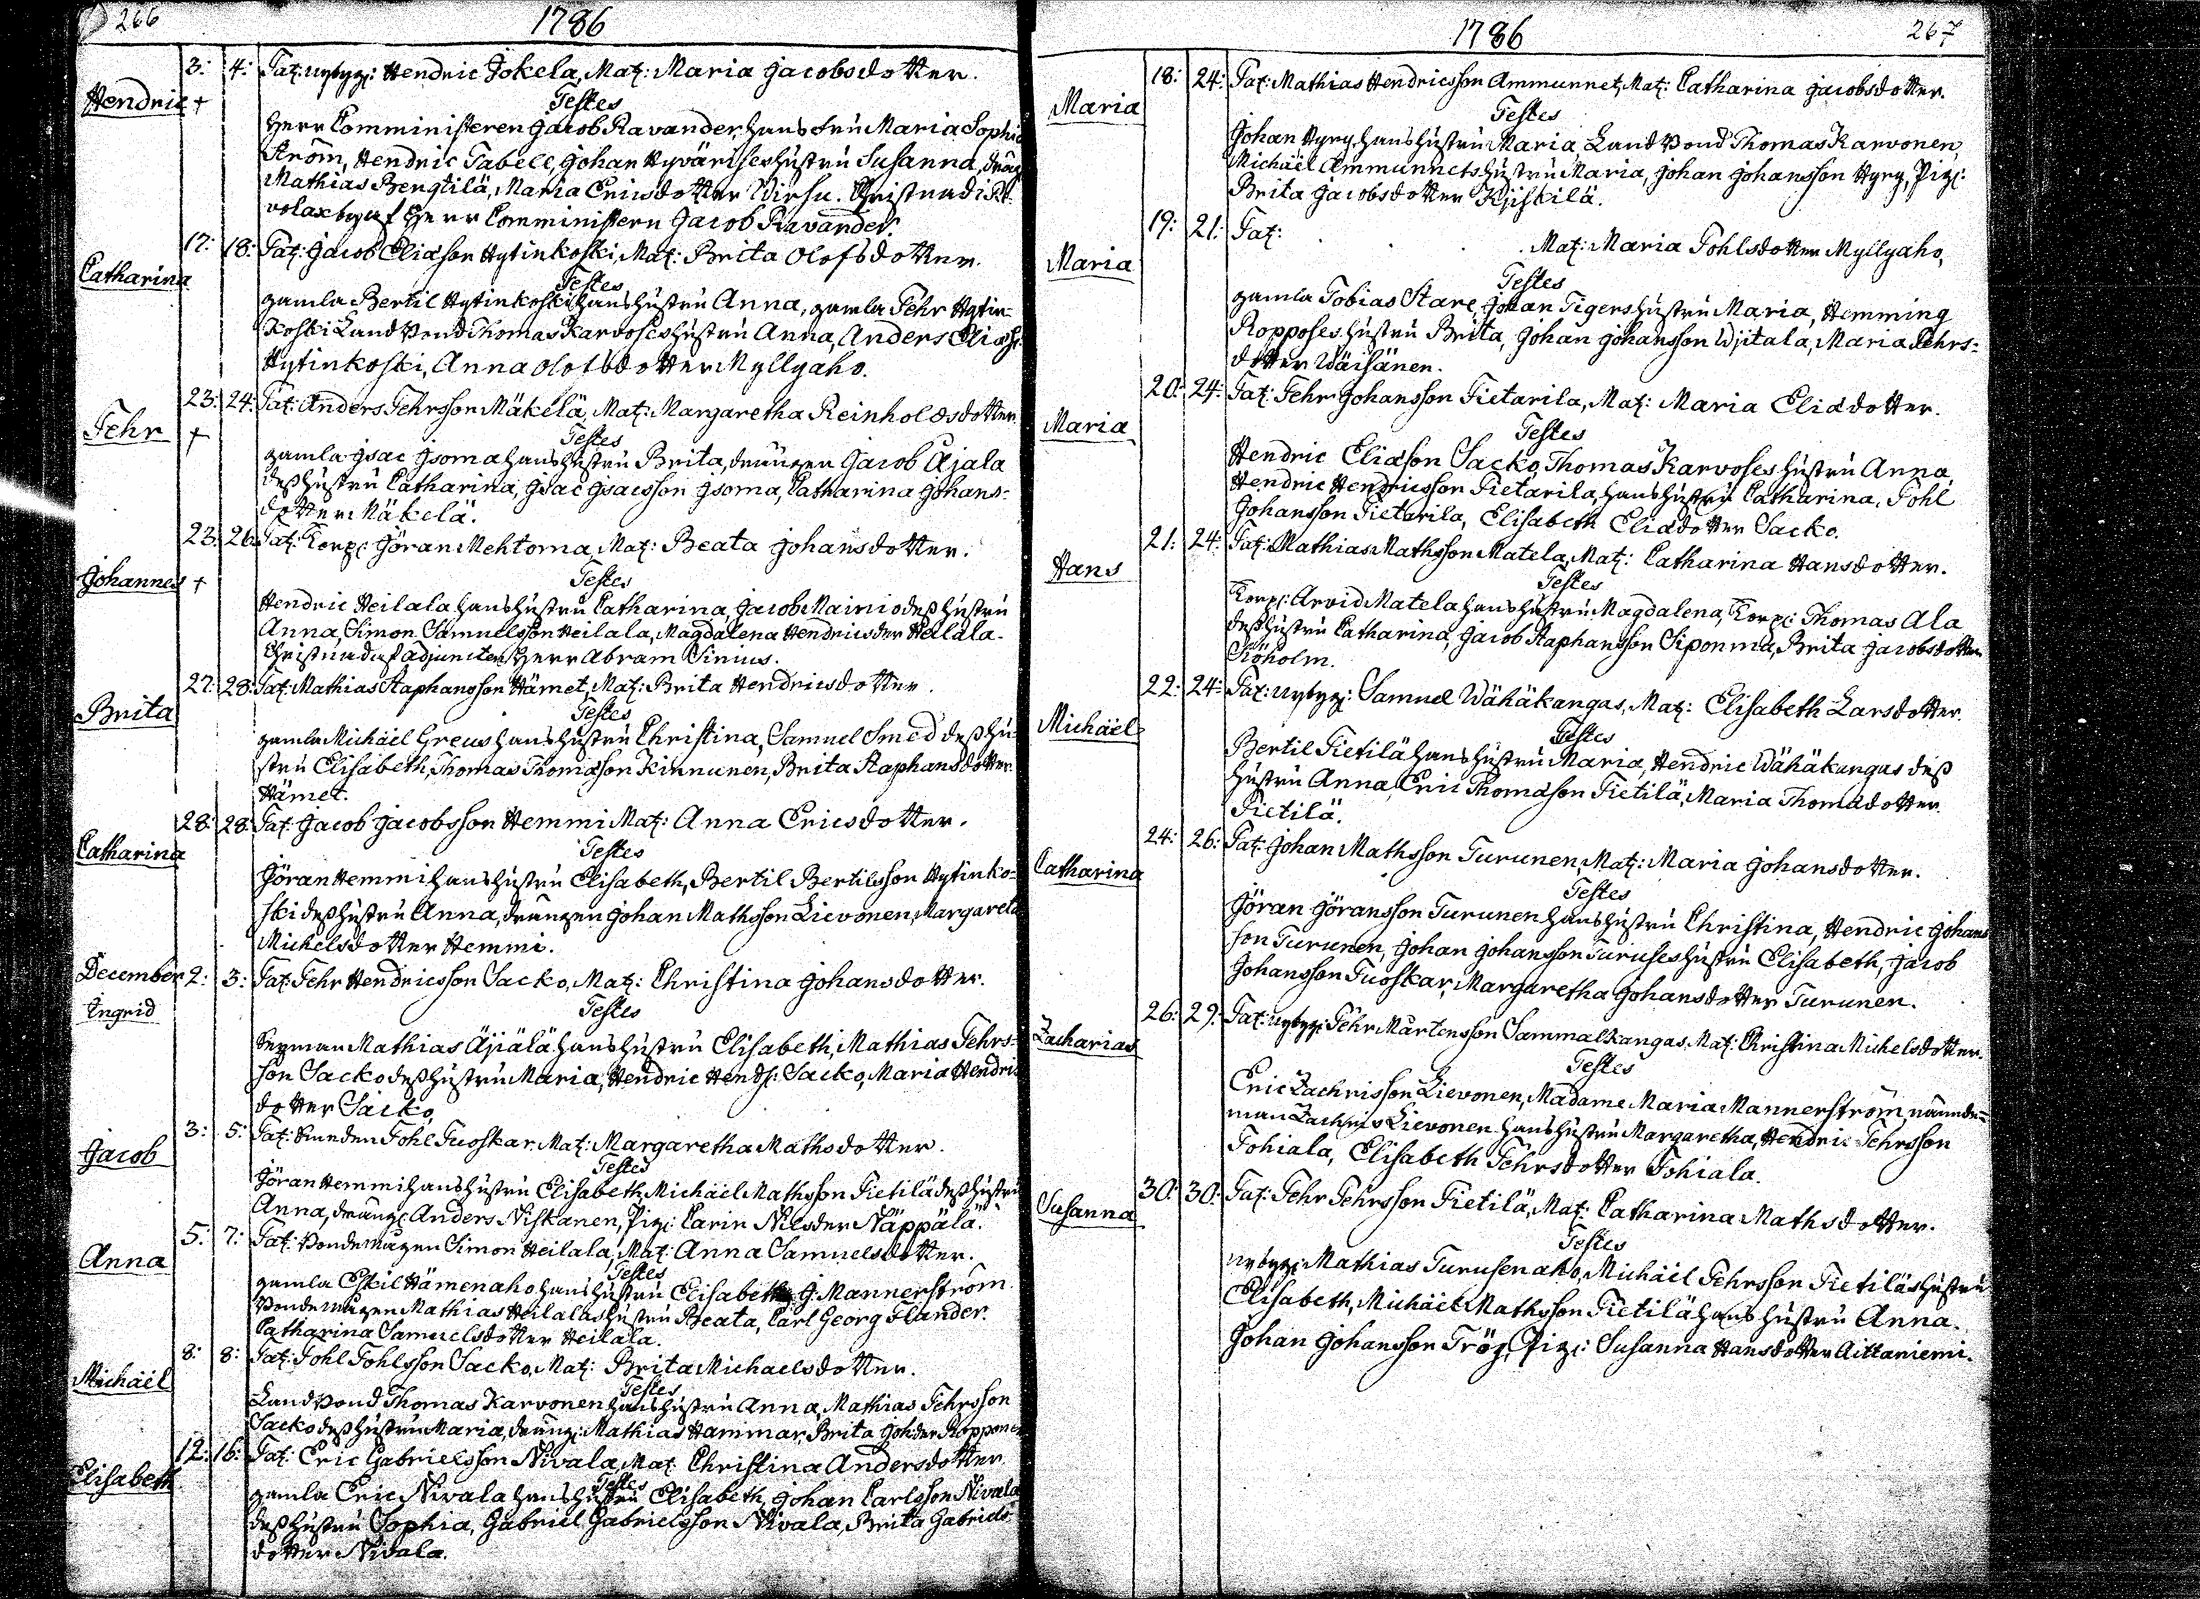 266
1786
3: 4: Pat: nybygg: Hendric Jokela, Mat: Maria Jacobsdotter.
Hendric +
Testes
Herr Comministeren Jacob Ravander, hans fru Maria Sophia
Ström, Hendric Tabell, Johan Hyvärises hustru Susanna, dräng
Mathias Bengtilä, Maria Ericsdotter Wirsu. Christnad i
volax by af Herr Comministern Jacob Ravander.
17: 18: Pat: Jacob Eliasson Hytinkoski, Mat: Brita Olofsdotter.
Catharina
Testes
gamla Bertil Hytinkoski hans hustru Anna, gamla Pehr Hytin-
koski Landbond Thomas Karvoses hustru Anna, Anders Eliass:
Hytinkoski, Anna Olofsdotter Myllyaho.
23: 24: Pat: Anders Pehrsson Mäkelä, Mat: Margaretha Reinholdsdotter
Pehr +
Testes
gamla Isac Isoma hans hustru Brita, drängen Jacob Ajala
dess hustru Catharina, Isac Isacsson Isoma, Catharina Johans-
dotter Mäkelä.
23: 26: Pat: Korp: Göran Mehtoma, Mat: Beata Johansdotter.
Johannes +
Testes
Hendric Heilala hans hustru Catharina, Jacob Mainio dess hustru
Anna, Simon Samuelsson Heilala, Magdalena Hendricsder Heilala.
Christnad af adjuncten Herr Abram Sinius.
27: 28: Pat: Mathias Staphansson Hämet, Mat: Brita Hendricsdotter.
Brita
Testes
gamla Michäel Greus hans hustru Christina, Samuel Smed dess hu-
stru Elisabeth, Thomas Thomasson Kinnunen, Brita Staphansdotter
Hämet.
28: 28: Pat: Jacob Jacobsson Hemmi Mat: Anna Ericsdotter.
Catharina
Testes
Göran Hemmi hans hustru Elisabeth, Bertil Bertilsson Hytinko-
ski dess hustru Anna, drängen Johan Mathsson Lievonen, Margareta
Michelsdotter Hemmi.
December 2: 3: Pat: Pehr Hendricsson Sacko, Mat: Christina Johansdotter.
Ingrid
Testes
Mathias Äijälä hans hustru Elisabeth, Mathias Pehrs-
son Sacko dess hustru Maria, Hendric Hends: Sacko, Maria Hendrics
dotter Sacko.
3: 5: Pat: Pohl Puoskar, Mat: Margaretha Mathsdotter.
Jacob
Testes
Göran Hemmi hans hustru Elisabeth, Michäel Mathsson Pietilä dess hustru
Anna, dräng: Anders Niskanen, Pig: Carin Nilsder Näppälä.
5: 7: Pat: Bondemågen Simon Heilala, Mat: Anna Samuelsdotter.
Anna
Testes
gamla Eskil Hämenaho hans hustru Elisabeth G: Mannerström
Bondemågen Mathias Heilalas hustru Beata, Carl Georg Flander.
Catharina Samuelsdotter Heilala.
8: 8: Pat: Pohl Pohlsson Sacko, Mat: Brita Michaelsdotter.
Michäel
Testes
Landbond Thomas Karvonen hans hustru Anna, Mathias Pehrsson
Sacko dess hustru Maria, dräng: Mathias Hammar, Brita Johsder Ropponen
12: 16: Pat: Eric Gabrielsson Nivala, Mat: Christina Andersdotter
Elisabeth
Testes
gamla Eric Nivala hans hustru Elisabeth, Johan Carlsson Nivala
dess hustru Sophia, Gabriel Gabrielsson Nivala, Brita Gabriels-
dotter Nivala.
1786
267
18: 24: Pat: Mathias Hendricsson Ammunnet, Mat: Catharina Jacobsdotter.
Maria
Testes
Johan Hyry, hans hustru Maria, Landbond Thomas Karvonen,
Michäel Ammunnets hustru Maria, Johan Johansson Hyry, Pig:
Brita Jacobsdotter Kijskilä.
19: 21: Pat: Mat: Maria Pohlsdotter Myllyaho,
Maria
Testes
gamla Tobias Stare, Johan Tigers hustru Maria, Hemming
Ropposes hustru Brita, Johan Johansson Wijtala, Maria Pehrs-
dotter Wäisänen.
20: 24: Pat: Pehr Johansson Pietarila, Mat: Maria Eliædotter.
Maria
Testes
Hendric Eliasson Sacko, Thomas Karvoses hustru Anna,
Hendric Hendricsson Pietarila, hans hustru Catharina, Pohl
Johansson Pietarila, Elisabeth Eliædotter Sacko.
21: 24: Pat: Mathias Mathsson Matela, Mat: Catharina Hansdotter.
Hans
Testes
Korp: Arvid Matela hans hustru Magdalena, Korp: Thomas Ala
dess hustru Catharina, Jacob Staphansson Siponma, Brita Jacobsdotter
Sjöholm.
22: 24: Pat: nybygg: Samuel Wähäkangas, Mat: Elisabeth Larsdotter.
Michäel
Testes
Bertil Pietilä hans hustru Maria, Hendric Wähäkangas dess
hustru Anna, Eric Thomasson Pietilä, Maria Thomædotter
Pietilä.
24: 26: Pat: Johan Mathsson Turunen, Mat: Maria Johansdotter.
Catharina
Testes
Göran Göransson Turunen hans hustru Christina, Hendric Johans
son Turunen, Johan Johansson Turuses hustru Elisabeth, Jacob
Johansson Puoskar, Margaretha Johansdotter Turunen.
26: 29: Pat: nybygg: Pehr Mårtensson Sammalkangas, Mat: Christina Michelsdotter.
Zacharias
Testes
Eric Zachrisson Lievonen, Madame Maria Mannerström, nämnde-
man Zachris Lievonen hans hustru Margaretha, Hendric Pehrsson
Pohiala, Elisabeth Pehrsdotter Pohiala.
30: 30: Pat: Pehr Pehrsson Pietilä, Mat: Catharina Mathsdotter.
Susanna
Testes
nybygg: Mathias Turusenaho, Michäel Pehrsson Pietiläs hustru
Elisabeth, Michäel Mathsson Pietilä hans hustru Anna.
Johan Johansson Trög, Pig: Susanna Hansdotter Aittaniemi.